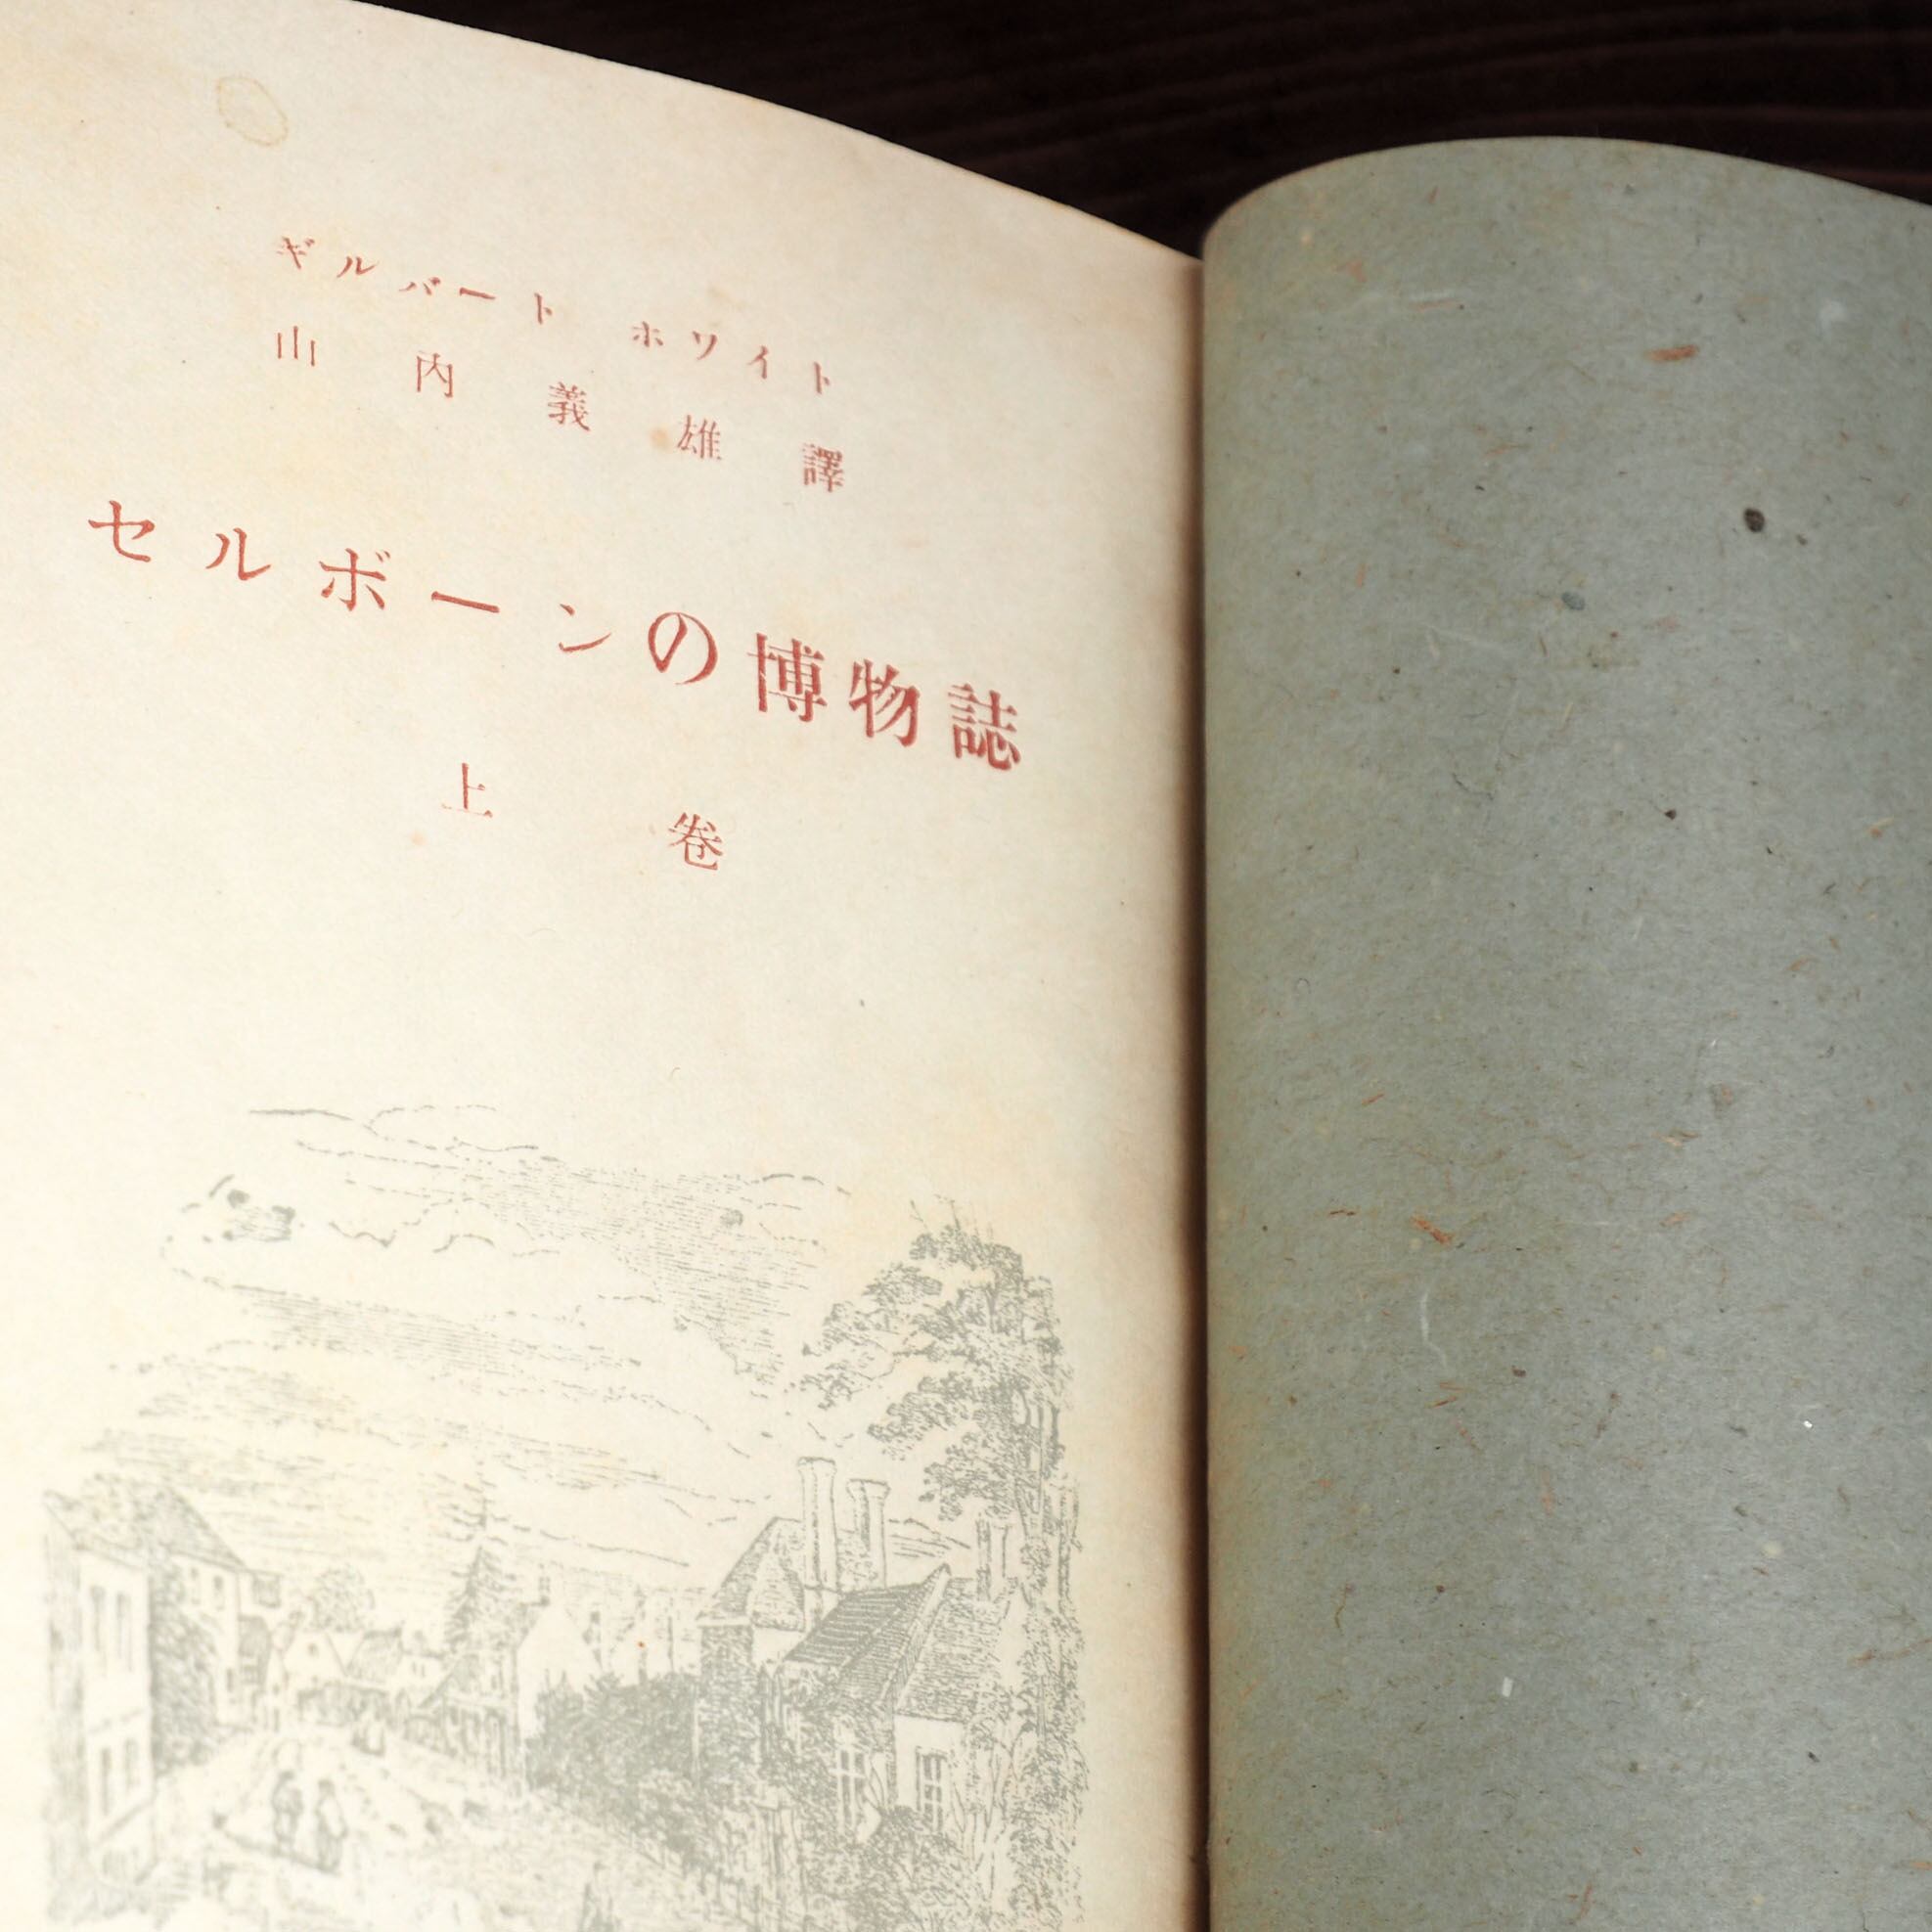 ギルバート ホワイト
山内義雄譯
セルボーンの博物誌
上卷